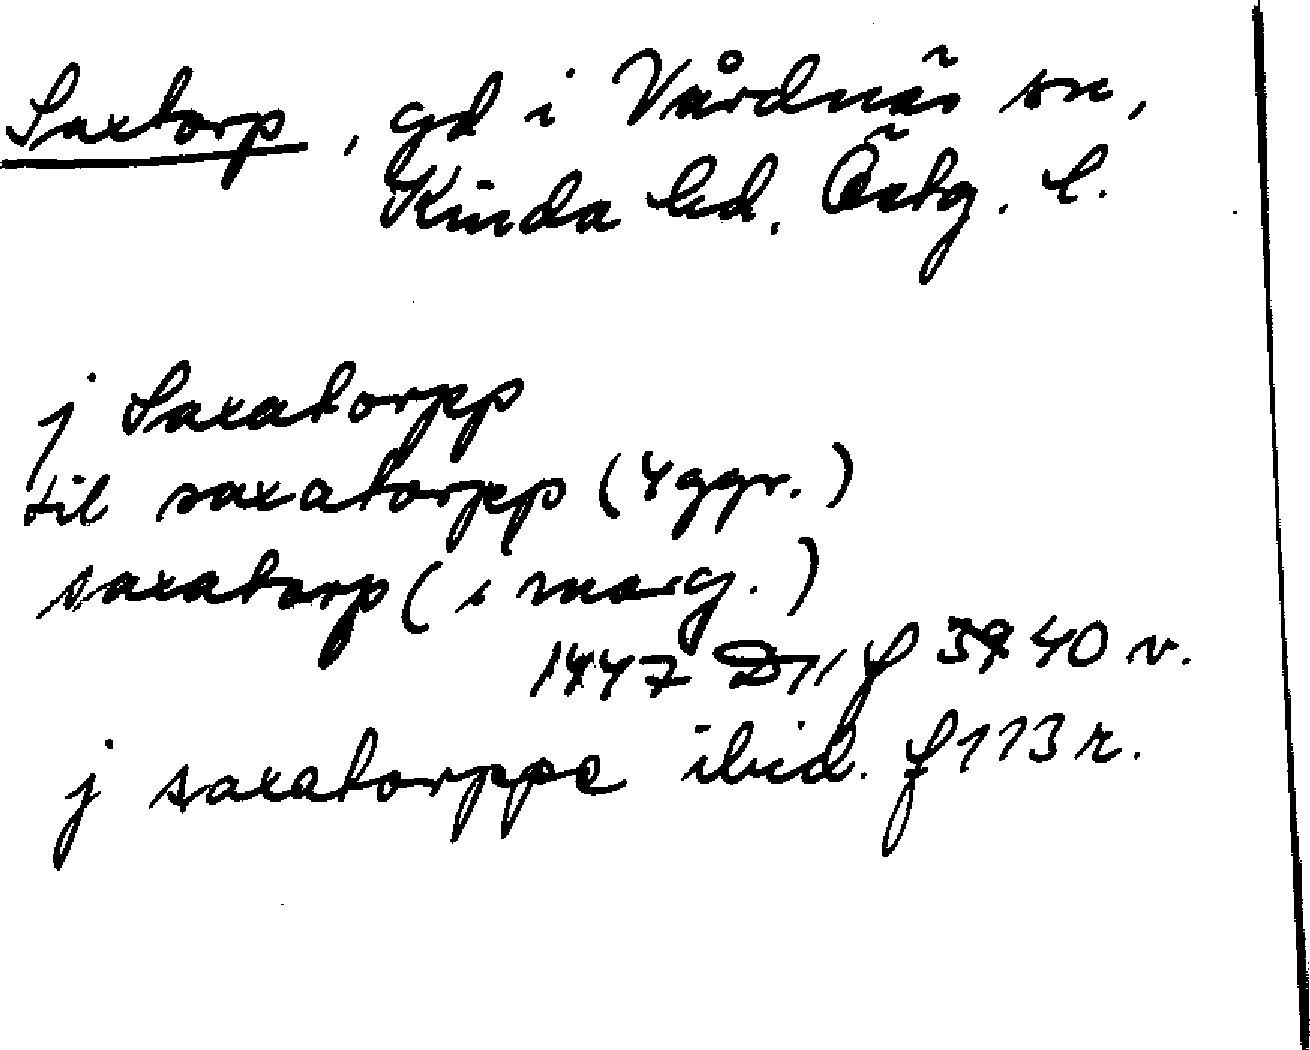 Saxtorp, gd i Vårdnäs sn,
Kinda hd. Östg. l.
j Saxatorpp
til saxatorpp (4 ggr.)
saxatorp (i marg.)
1447 D11 f 39 40 v.
j saxatorppe ibid. f 113 r.